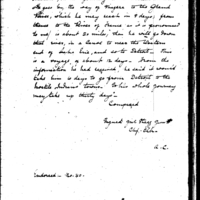 He goes by the way of Niagara to the Grand
River, which he may reach in 4 days; from
thence to the River of France as it is pronounced
to us is about 30 miles; then he will go down
that river, in a canoe to near the Western
end of Lake Erie, and so to Detroit. This
is a voyage of about 12 days. From the
information he had required, he said it would
take him 10 days to go from Detroit to the
hostile Indians' towns. So his whole journey
may take up thirty days".
Compared
A. C.
Endorsed - No. 20.